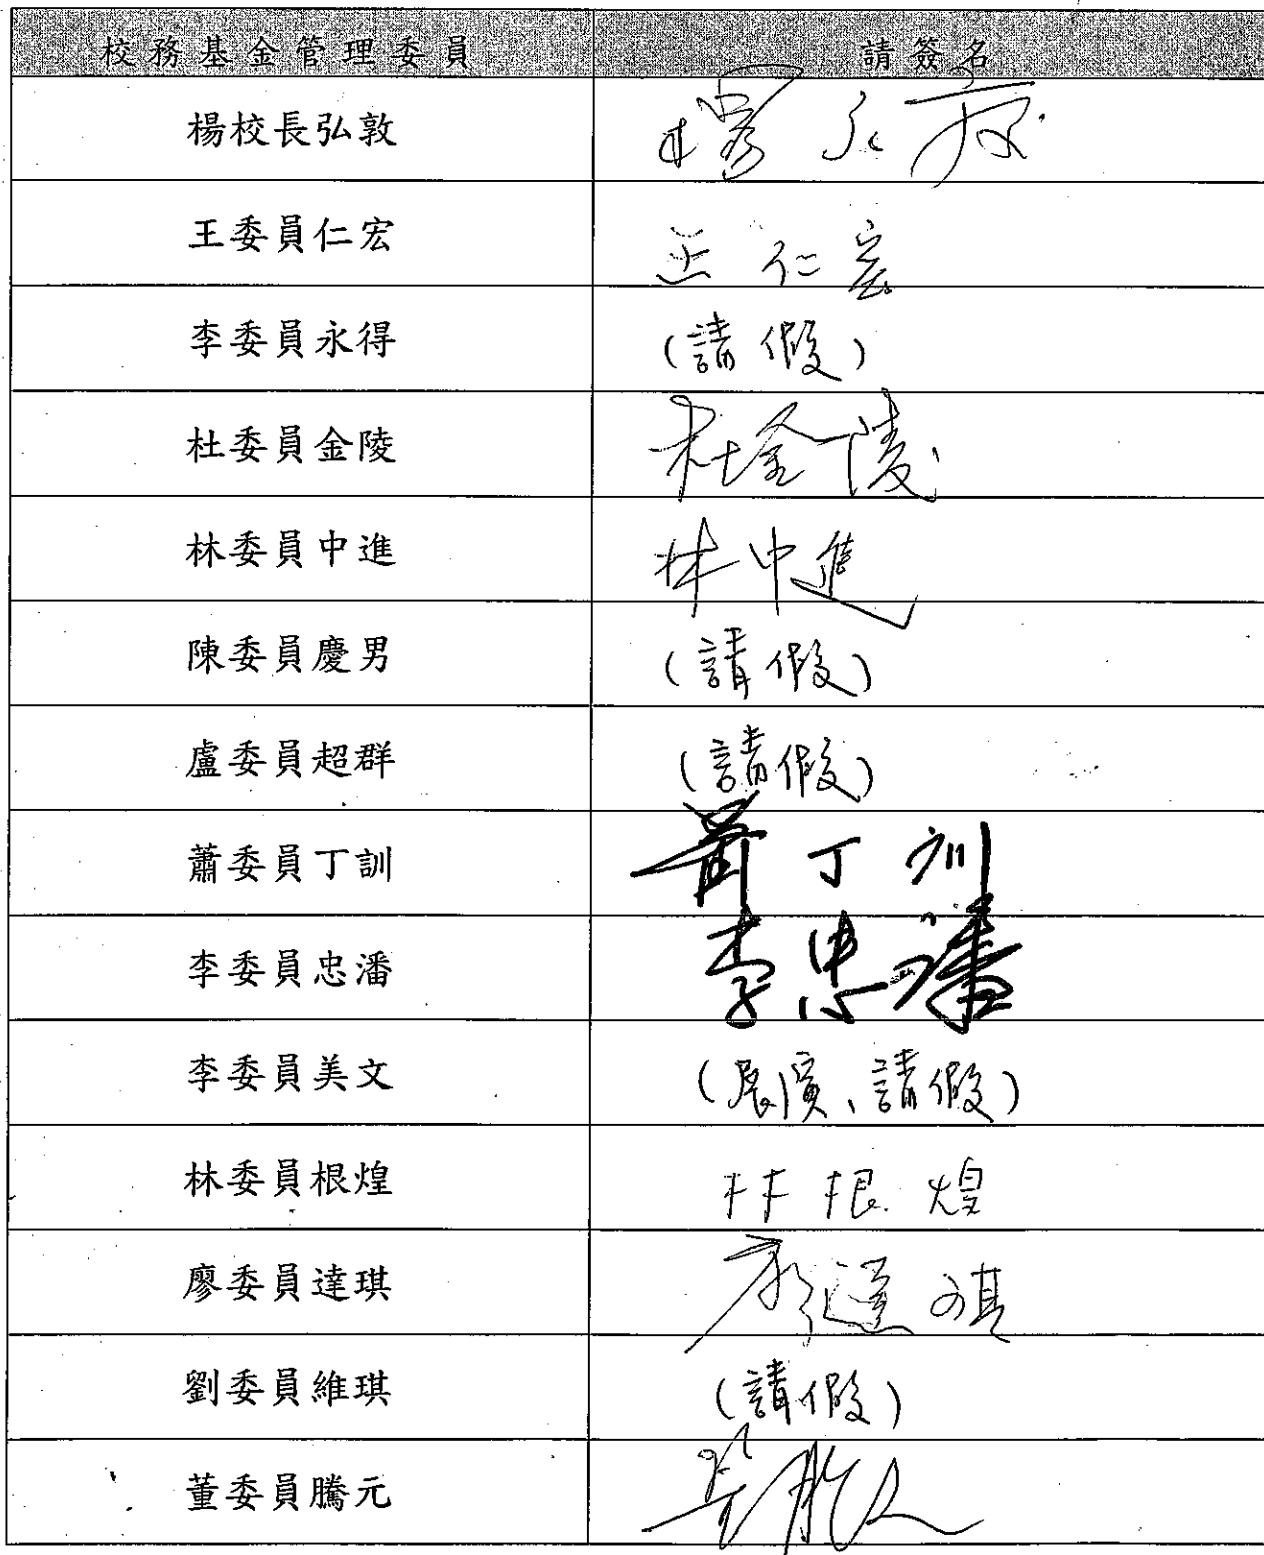 校務基金管理委員 請簽名
楊校長弘敦 楊弘敦
王委員仁宏 王仁宏
李委員永得 (請假)
杜委員金陵 杜金陵
林委員中進 林中進
陳委員慶男 (請假)
盧委員超群 (請假)
蕭委員丁訓 蕭丁訓
李委員忠潘 李忠潘
李委員美文 (展演、請假)
林委員根煌 林根煌
廖委員達琪 廖達琪
劉委員維琪 (請假)
董委員騰元 董騰元